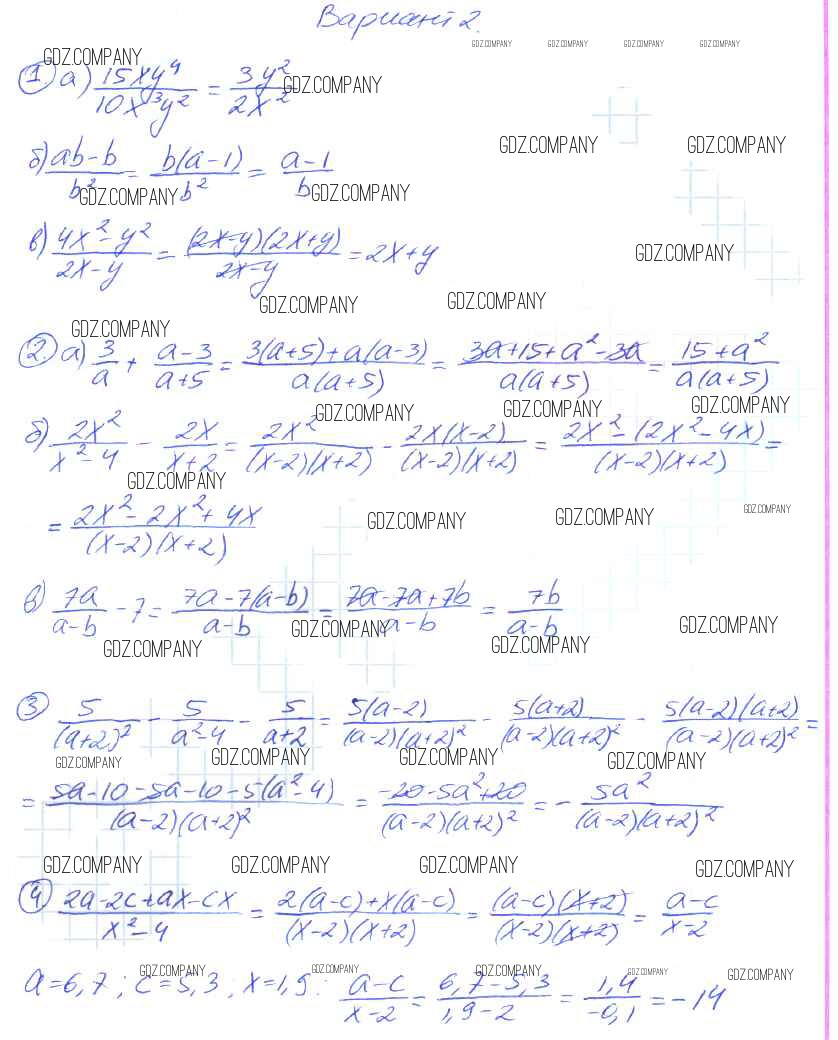 Вариант 2.
GDZ.COMPANY GDZ.COMPANY GDZ.COMPANY GDZ.COMPANY
GDZ.COMPANY
① а) 15xy⁴/10x³y² = 3y²/2x² GDZ.COMPANY
GDZ.COMPANY GDZ.COMPANY
б) ab-b/b² = b(a-1)/b² = a-1/b
GDZ.COMPANY GDZ.COMPANY
в) 4x²-y²/2x-y = (2x-y)(2x+y)/2x-y = 2x+y GDZ.COMPANY
GDZ.COMPANY GDZ.COMPANY
GDZ.COMPANY
② а) 3/a + a-3/a+5 = 3(a+5)+a(a-3)/a(a+5) = 3a+15+a²-3a/a(a+5) = 15+a²/a(a+5)
GDZ.COMPANY GDZ.COMPANY GDZ.COMPANY
б) 2x²/x²-4 - 2x/x+2 = 2x²/(x-2)(x+2) - 2x(x-2)/(x-2)(x+2) = 2x²-(2x²-4x)/(x-2)(x+2) =
GDZ.COMPANY
= 2x²-2x²+4x/(x-2)(x+2) GDZ.COMPANY GDZ.COMPANY GDZ.COMPANY
в) 7a/a-b - 7 = 7a-7(a-b)/a-b = 7a-7a+7b/a-b = 7b/a-b
GDZ.COMPANY GDZ.COMPANY
GDZ.COMPANY GDZ.COMPANY
③ 5/(a+2)² - 5/a²-4 - 5/a+2 = 5(a-2)/(a-2)(a+2)² - 5(a+2)/(a-2)(a+2)² - 5(a-2)(a+2)/(a-2)(a+2)² =
GDZ.COMPANY GDZ.COMPANY GDZ.COMPANY GDZ.COMPANY
= 5a-10-5a-10-5(a²-4)/(a-2)(a+2)² = -20-5a²+20/(a-2)(a+2)² = - 5a²/(a-2)(a+2)²
GDZ.COMPANY GDZ.COMPANY GDZ.COMPANY GDZ.COMPANY
④ 2a-2c+ax-cx/x²-4 = 2(a-c)+x(a-c)/(x-2)(x+2) = (a-c)(x+2)/(x-2)(x+2) = a-c/x-2
GDZ.COMPANY GDZ.COMPANY GDZ.COMPANY GDZ.COMPANY GDZ.COMPANY
a=6,7; c=5,3; x=1,9: a-c/x-2 = 6,7-5,3/1,9-2 = 1,4/-0,1 = -14